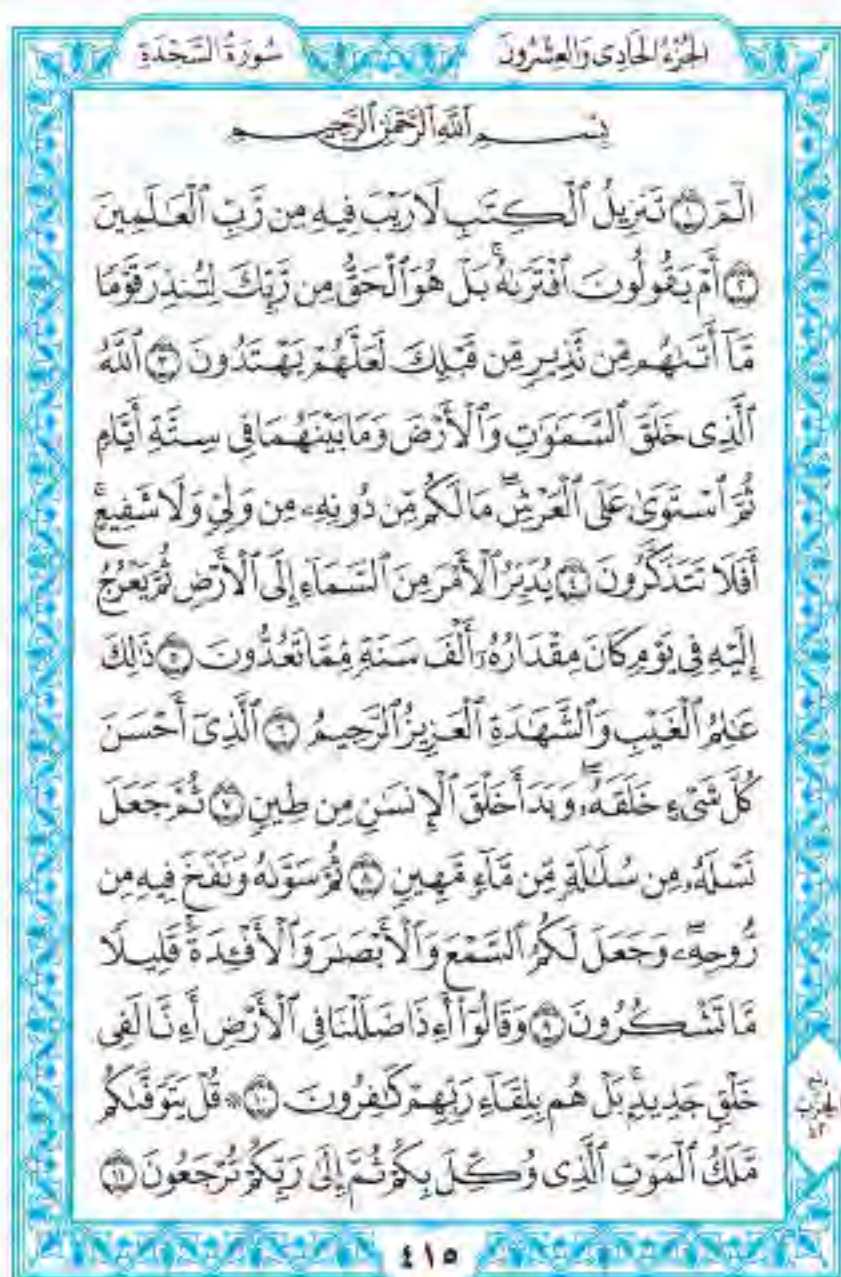 الجُزْءُ الحَادِى وَالعِشْرُونَ سُورَةُ السَّجْدَةِ
بِسْمِ ٱللَّهِ ٱلرَّحْمَٰنِ ٱلرَّحِيمِ
الٓمٓ ۝١ تَنزِيلُ ٱلْكِتَٰبِ لَا رَيْبَ فِيهِ مِن رَّبِّ ٱلْعَٰلَمِينَ
۝٢ أَمْ يَقُولُونَ ٱفْتَرَىٰهُ ۚ بَلْ هُوَ ٱلْحَقُّ مِن رَّبِّكَ لِتُنذِرَ قَوْمًا
مَّآ أَتَىٰهُم مِّن نَّذِيرٍ مِّن قَبْلِكَ لَعَلَّهُمْ يَهْتَدُونَ ۝٣ ٱللَّهُ
ٱلَّذِى خَلَقَ ٱلسَّمَٰوَٰتِ وَٱلْأَرْضَ وَمَا بَيْنَهُمَا فِى سِتَّةِ أَيَّامٍ
ثُمَّ ٱسْتَوَىٰ عَلَى ٱلْعَرْشِ ۖ مَا لَكُم مِّن دُونِهِۦ مِن وَلِىٍّ وَلَا شَفِيعٍ ۚ
أَفَلَا تَتَذَكَّرُونَ ۝٤ يُدَبِّرُ ٱلْأَمْرَ مِنَ ٱلسَّمَآءِ إِلَى ٱلْأَرْضِ ثُمَّ يَعْرُجُ
إِلَيْهِ فِى يَوْمٍ كَانَ مِقْدَارُهُۥٓ أَلْفَ سَنَةٍ مِّمَّا تَعُدُّونَ ۝٥ ذَٰلِكَ
عَٰلِمُ ٱلْغَيْبِ وَٱلشَّهَٰدَةِ ٱلْعَزِيزُ ٱلرَّحِيمُ ۝٦ ٱلَّذِىٓ أَحْسَنَ
كُلَّ شَىْءٍ خَلَقَهُۥ ۖ وَبَدَأَ خَلْقَ ٱلْإِنسَٰنِ مِن طِينٍ ۝٧ ثُمَّ جَعَلَ
نَسْلَهُۥ مِن سُلَٰلَةٍ مِّن مَّآءٍ مَّهِينٍ ۝٨ ثُمَّ سَوَّىٰهُ وَنَفَخَ فِيهِ مِن
رُّوحِهِۦ ۖ وَجَعَلَ لَكُمُ ٱلسَّمْعَ وَٱلْأَبْصَٰرَ وَٱلْأَفْـِٔدَةَ ۚ قَلِيلًا
مَّا تَشْكُرُونَ ۝٩ وَقَالُوٓا۟ أَءِذَا ضَلَلْنَا فِى ٱلْأَرْضِ أَءِنَّا لَفِى
خَلْقٍ جَدِيدٍۭ ۚ بَلْ هُم بِلِقَآءِ رَبِّهِمْ كَٰفِرُونَ ۝١٠ ۞ قُلْ يَتَوَفَّىٰكُم
مَّلَكُ ٱلْمَوْتِ ٱلَّذِى وُكِّلَ بِكُمْ ثُمَّ إِلَىٰ رَبِّكُمْ تُرْجَعُونَ ۝١١
الحِزْب
٤١٥